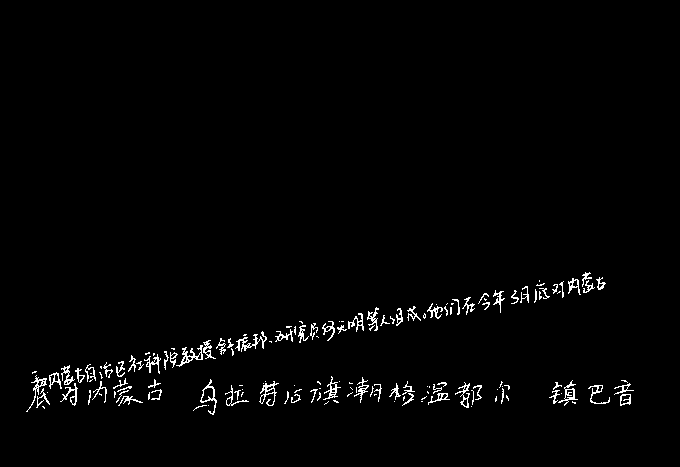 和内蒙古自治区社科院教授舒振邦、研究员何天明等人组成。他们在今年3月底对内蒙古
底对内蒙古 乌拉特后旗潮格温都尔 镇巴音